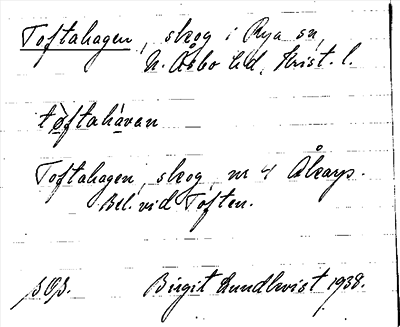 Toftahagen, skog i Rya sn,
N. Åsbo hd, Krist. l.
tòftahàvan
Toftahagen, skog, nr 4 Åkarp.
Bel. vid Toften.
Birgit Lundkvist 1938.